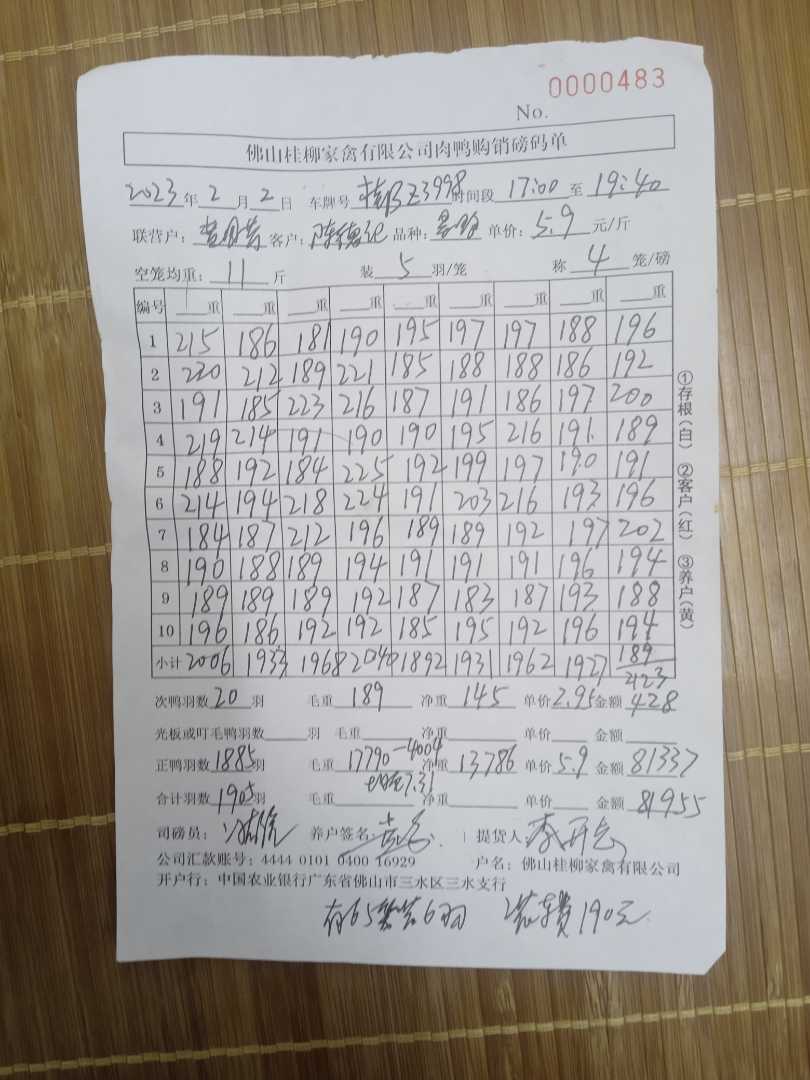 0000483
No.
佛山桂柳家禽有限公司肉鸭购销磅码单
2023年2月2日 车牌号 桂 Z3998 时间段 17:00 至 19:40
联营户: 客户: 陈德记 品种: 单价: 5.9 元/斤
空笼均重: 11 斤 装 5 羽/笼 称 4 笼/磅
编号 重 重 重 重 重 重 重 重 重
1 215 186 181 190 195 197 197 188 196
2 220 212 189 221 185 188 188 186 192
3 191 185 223 216 187 191 186 197 200
4 219 214 191 190 190 195 216 191 189
5 188 192 184 225 192 199 197 190 191
6 214 194 218 224 191 203 216 193 196
7 184 187 212 196 189 189 192 197 202
8 190 188 189 194 191 191 191 196 194
9 189 189 189 192 187 183 187 193 188
10 196 186 192 192 185 195 192 196 194
小计 2006 1933 1968 2040 1892 1931 1962 1927 189
2123
次鸭羽数 20 羽 毛重 189 净重 145 单价 2.95 金额 428
光板或叮毛鸭羽数 羽 毛重 净重 单价 金额
正鸭羽数 1885 羽 毛重 17790-4004 净重 13786 单价 5.9 金额 81337
均重7.31
合计羽数 1905 羽 毛重 净重 单价 金额 81955
司磅员: 养户签名: 提货人
公司汇款账号: 4444 0101 0400 16929 户名: 佛山桂柳家禽有限公司
开户行: 中国农业银行广东省佛山市三水区三水支行
有65笼装6羽 装车费190元
①存根(白) ②客户(红) ③养户(黄)